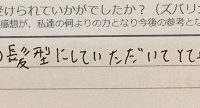 受けられていかがでしたか？（ズバリ
感想が、私達の何よりの力となり今後の参考とな
髪型にしていただいてとても